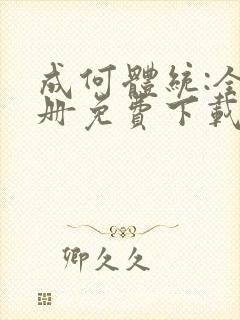 成何體統:全
册免費下載
卿久久